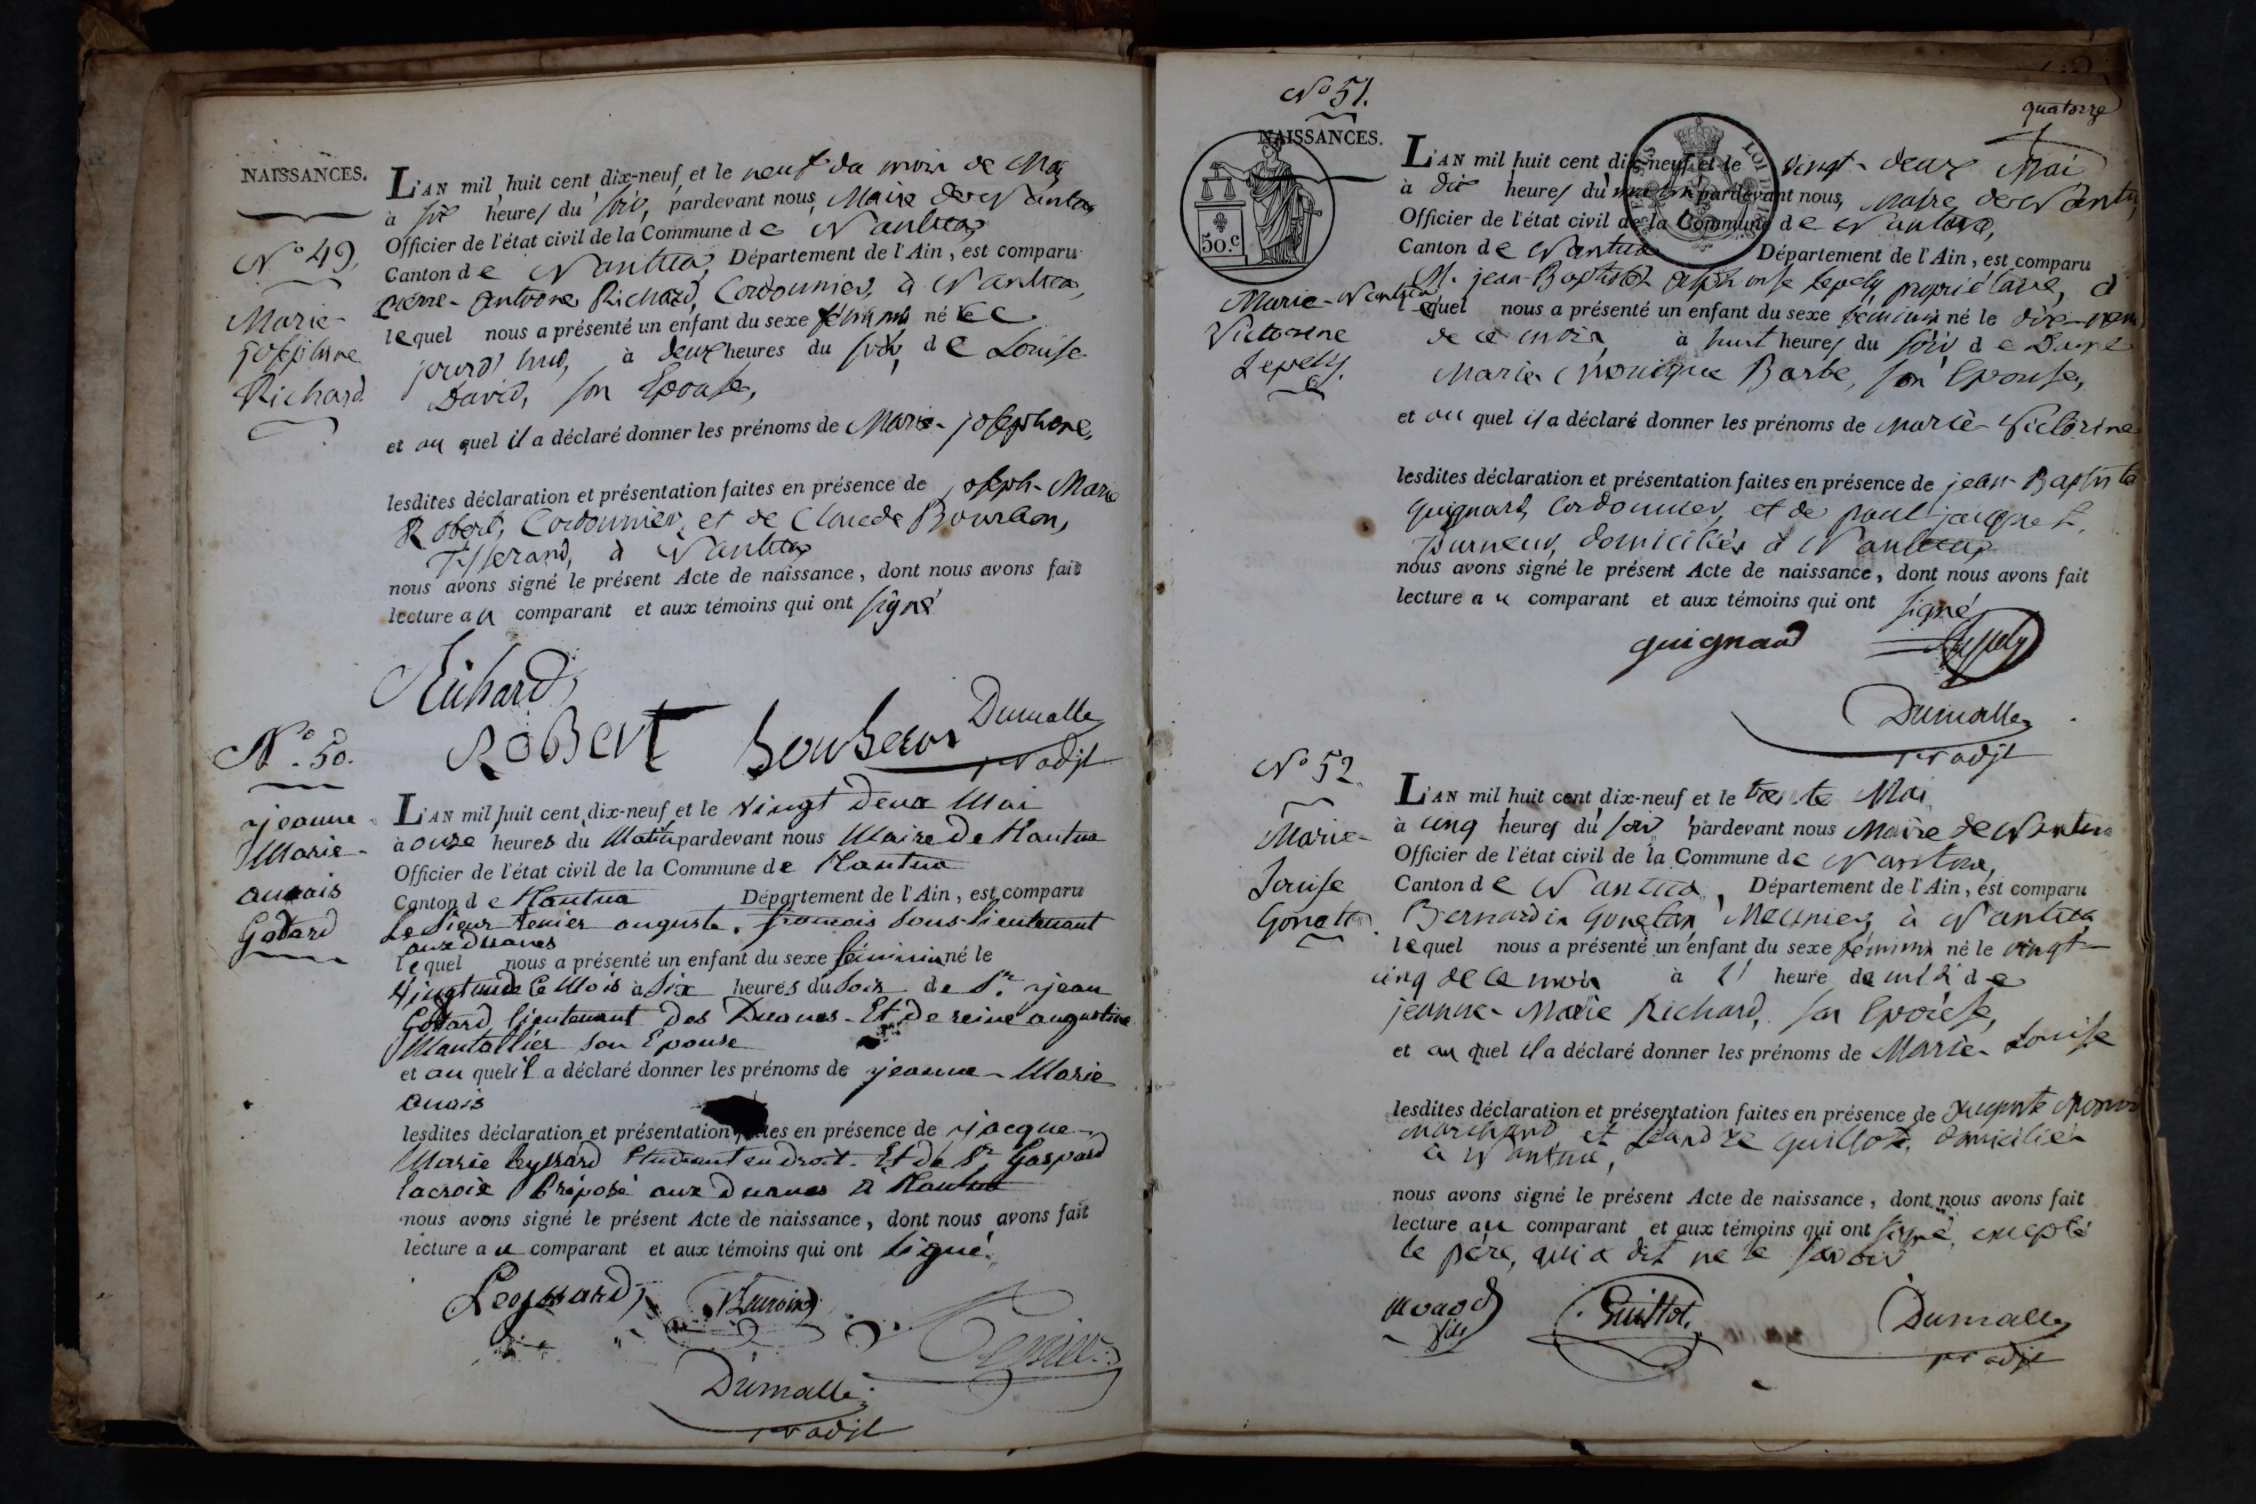 NAISSANCES.
N.o 49.
Marie-
josephine
Richard
L'AN mil huit cent dix-neuf, et le neuf du mois de Mai
à six heures du soir, pardevant nous Maire de Nantua
Officier de l'état civil de la Commune de Nantua
Canton de Nantua, Département de l'Ain, est comparu
pierre-antoine Richard, Cordonnier, à Nantua,
lequel nous a présenté un enfant du sexe féminin né le ce
jourd'hui, à deux heures du soir, de Louise
David, son Epouse,
et au quel il a déclaré donner les prénoms de Marie-josephine,
lesdites déclaration et présentation faites en présence de joseph-Marie
Robert, Cordonnier, et de Claude Bourbon,
Tisserand, à Nantua
nous avons signé le présent Acte de naissance, dont nous avons fait
lecture au comparant et aux témoins qui ont signé
Richard
RoBert
Dumalle
adjt
N.o 50.
jeanne
Marie-
anais
Godard
L'AN mil huit cent dix-neuf et le vingt deux Mai
à onze heures du Matin pardevant nous Maire de Nantua
Officier de l'état civil de la Commune de Nantua
Canton de Nantua Département de l'Ain, est comparu
Le Sieur auguste françois Sous-lieutenant
aux Duanes
lequel nous a présenté un enfant du sexe féminin né le
vingt un de ce Mois à Six heures du Soir de Sr. jean
Godard lieutenant Des Duanes-Et de reine augustine
Mantallier son Epouse
et au quel il a déclaré donner les prénoms de jeanne-Marie
anais
lesdites déclaration et présentation faites en présence de jacque-
Marie leyssard Etudiant en droit-Et de Sr Gaspard
lacroix Préposé aux Duanes à Nantua
nous avons signé le présent Acte de naissance, dont nous avons fait
lecture au comparant et aux témoins qui ont signé.
Leyssard
Lacroix
Dumalle
adjt
quatorze
No 51.
NAISSANCES.
50.c
Marie-
Victorine
Lepely.
L'AN mil huit cent dix-neuf et le vingt-deux Mai
à dix heures du pardevant nous, Maire de Nantua
Officier de l'état civil de la Commune de Nantua,
Canton de Nantua Département de l'Ain, est comparu
M. jean-Baptiste alphonse Lepely, propriétaire, à
lequel nous a présenté un enfant du sexe féminin né le dix-neuf
de ce mois à huit heures du soir de Dame
Marie Monique Barbe, son Epouse,
et au quel il a déclaré donner les prénoms de Marie-Victorine
lesdites déclaration et présentation faites en présence de jean-Baptiste
guignard, Cordonnier, et de paul jacquet,
Turneur, domiciliés à Nantua
nous avons signé le présent Acte de naissance, dont nous avons fait
lecture au comparant et aux témoins qui ont signé
guignard
Dumalle
adjt
No 52.
Marie-
Louise
L'AN mil huit cent dix-neuf et le trente Mai
à cinq heures du soir pardevant nous Maire de Nantua
Officier de l'état civil de la Commune de Nantua,
Canton de Nantua, Département de l'Ain, est comparu
Bernardin Meunier, à Nantua
lequel nous a présenté un enfant du sexe féminin né le vingt-
cinq de ce mois à l' heure de midi de
jeanne-Marie Richard, son Epouse,
et au quel il a déclaré donner les prénoms de Marie-Louise
lesdites déclaration et présentation faites en présence de Auguste
Marchand et Léandre Guillot, domiciliés
à Nantua,
nous avons signé le présent Acte de naissance, dont nous avons fait
lecture au comparant et aux témoins qui ont signé, excepté
le père, qui a dit ne le savoir
fils
Guillot.
Dumalle
adjt